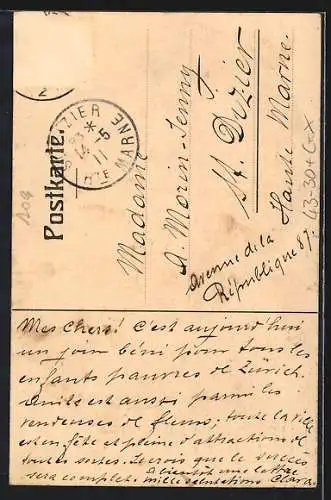 Postkarte.
ST DIZIER
14 -5
11
HTE MARNE
Madame
A. Morin-Jenny
St. Dizier
Haute Marne.
Avenue de la
République 87.
Mes Chers! C'est aujourd'hui
un jour béni pour tous les
enfants pauvres de Zürich.
est aussi parmi les
vendeuses de fleurs; toute la ville
est en fête et pleine d'attractions de
toutes sortes. Je crois que le succès
sera complet. mille salutations Clara.
une lettre